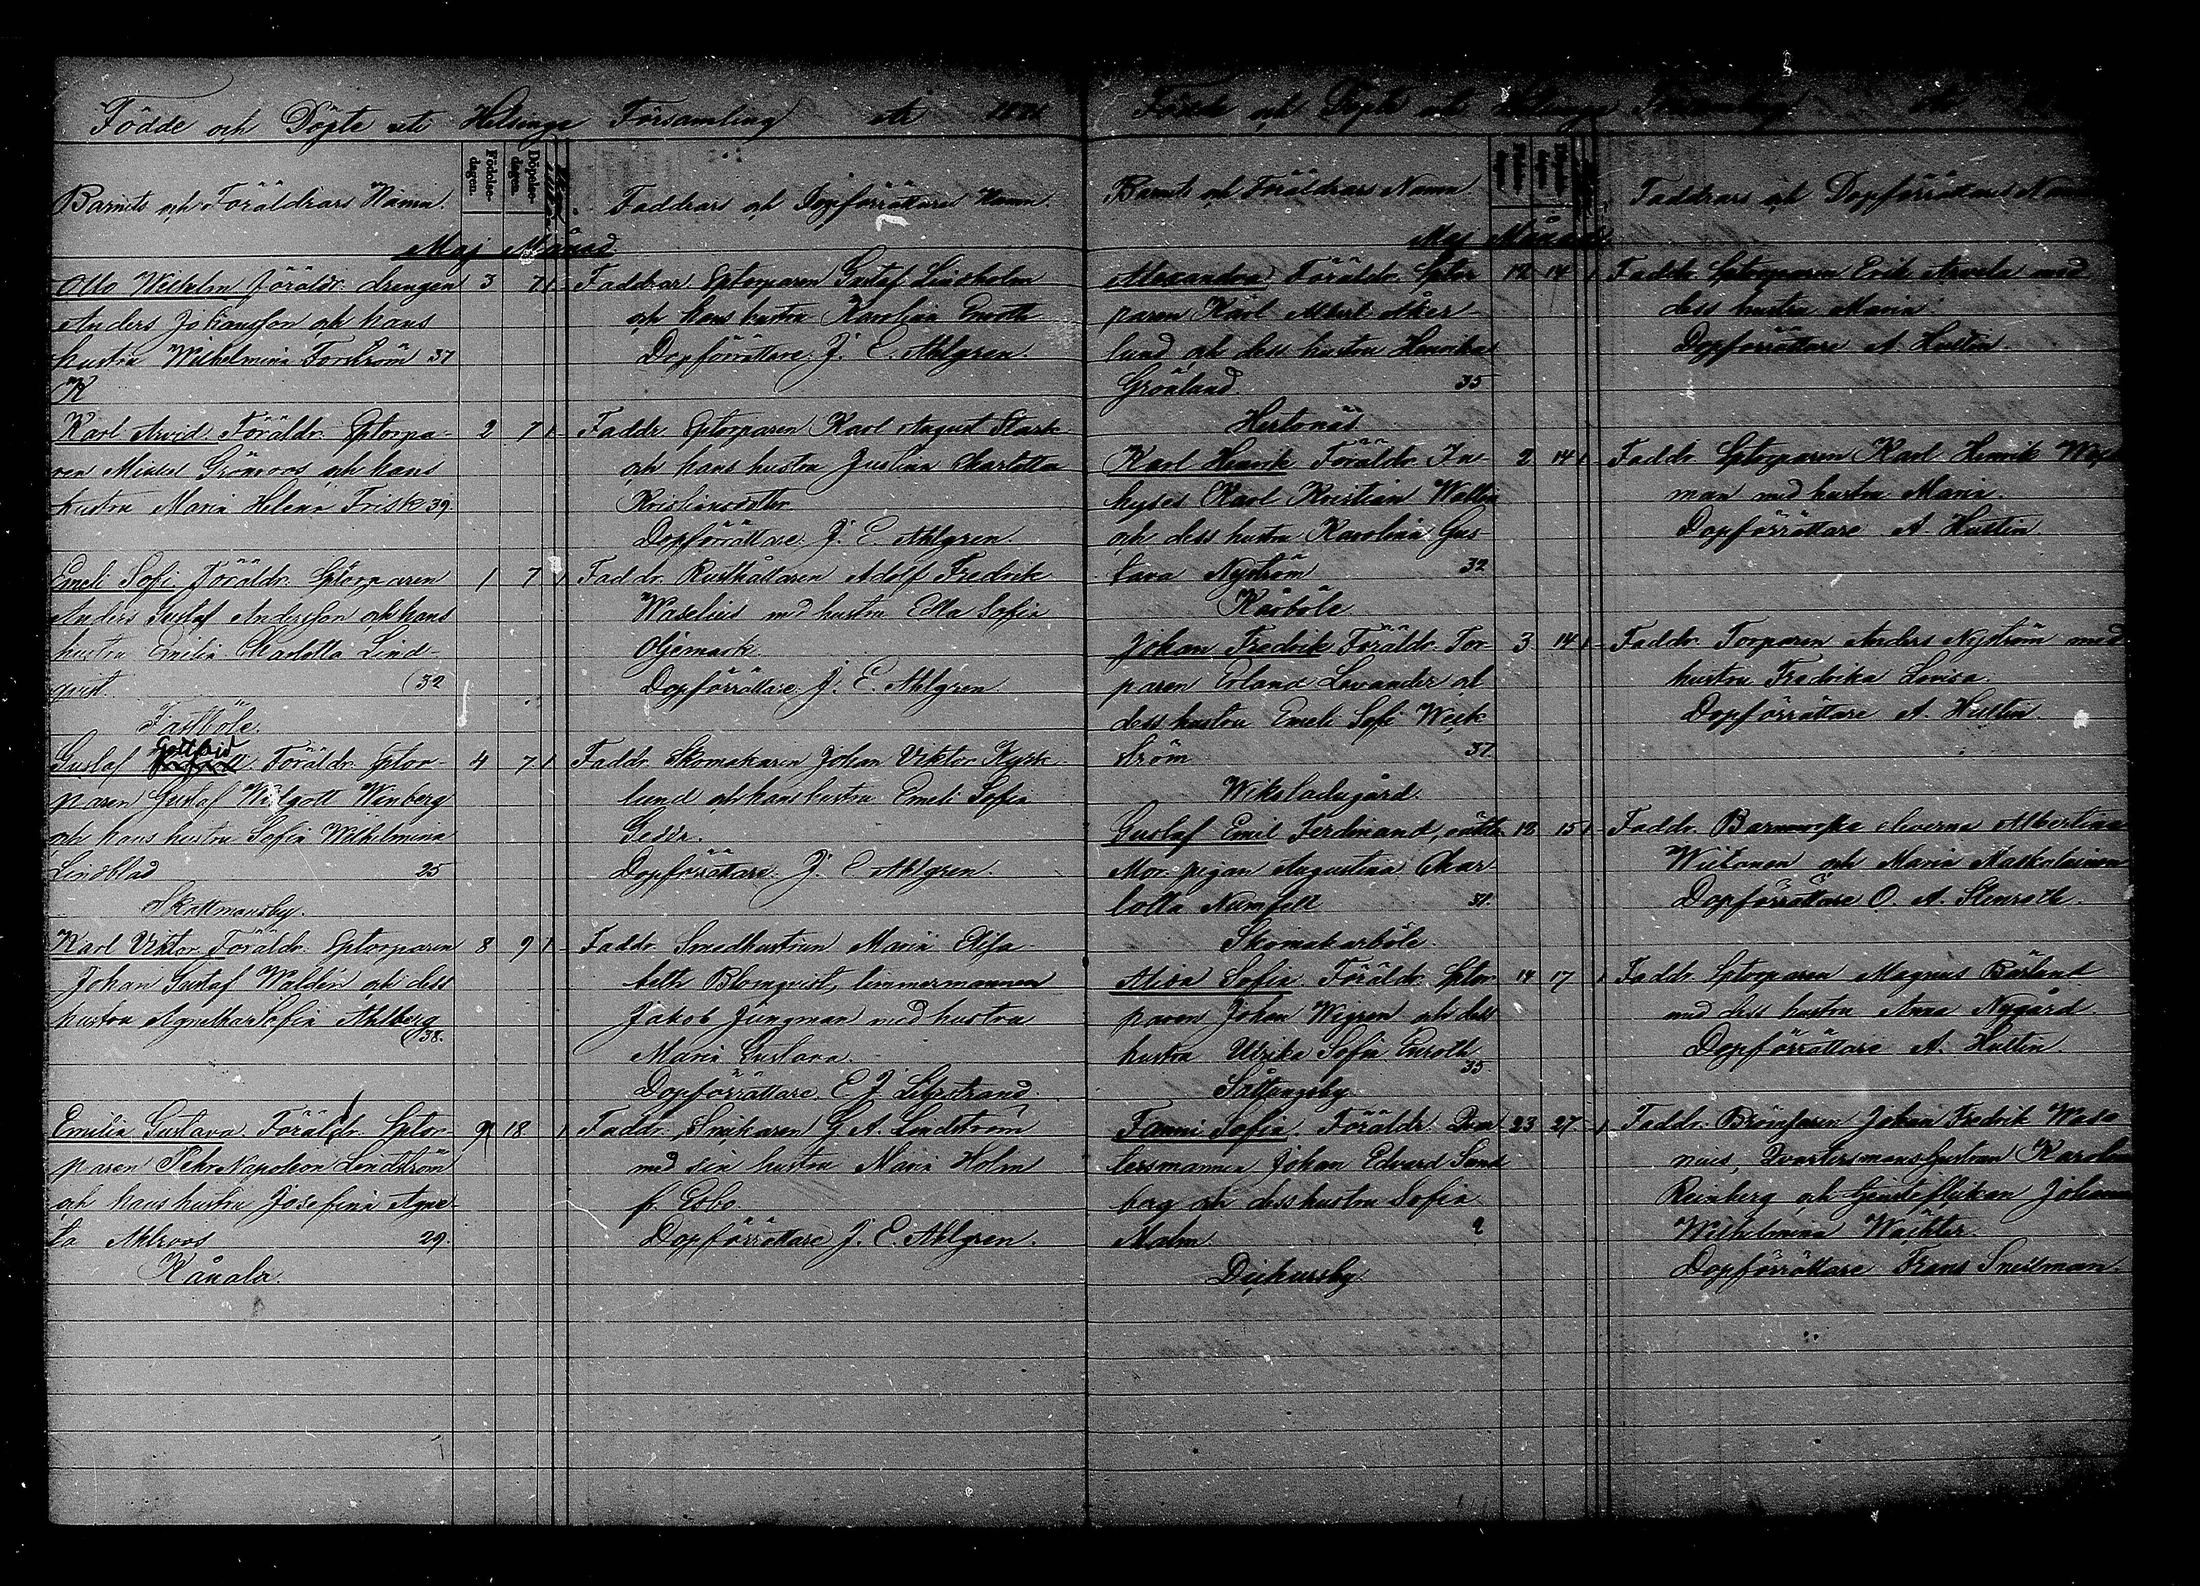 Födde och Döpte uti Helsinge Församling år
Barnets och Föräldrars Namn.
Födelse-dagen.
Döpelse-dagen.
Faddrars och Dopförrättares Namn.
Maj Månad
Otto Wilhelm Föräldr. drengen 3 7 1
Anders Johansson och hans
hustru Wilhelmina Forström 37
K
Faddrar Sptorparen Gustaf Lindholm
och hans hustru Karolina Enroth
Dopförrättare J. E. Ahlgren.
Karl Arvid Föräldr. Sptorpa- 2 7 1
ren Grönroos och hans
hustru Maria Helena Frisk 39
Faddr. Sptorparen Karl August Stark
och hans hustru Justina Charlotta
Kristiansdotter
Dopförrättare J. E. Ahlgren.
Emeli Sofi Föräldr. Sptorparen 1 7 1
Anders Gustaf Andersson och hans
hustru Emilia Charlotta Lind-
qvist. (32
Fastböle.
Faddr. Rusthållaren Adolf Fredrik
Waselius med hustru Edla Sofia
Öljemark
Dopförrättare J. E. Ahlgren
Gustaf Gottfrid Föräldr. Sptor- 4 7 1
paren Gustaf Widgott Winberg
och hans hustru Sofia Wilhelmina
Lindblad 25
Skattmansby.
Faddr. Skomakaren Johan Viktor Kyrk-
lund och hans hustru Emeli Sofia
Geddr.
Dopförrättare J. E Ahlgren.
Karl Viktor Föräldr. Sptorparen 8 9 1
Johan Gustaf Waldén och dess
hustru Agnetha Sofia Ahlberg
(38.
Faddr. Smedhustrun Maria Elisa
beth Blomqvist, timmermannen
Jakob Jungman med hustru
Maria Gustava.
Dopförrättare E J
Emilia Gustava. Föräldr. Sptor- 9 18 1
paren Pehr Napoleon Lindström
och hans hustru Josefina Agne-
ta Ahlroos 29.
Kånala.
Faddr. Snickaren G A. Lindström
med sin hustru Maria Holm
fr. Esbo
Dopförrättare J. E. Ahlgren.
Födde och Döpte uti Helsinge Församling år
Barnets och Föräldrars Namn
Faddrars och Dopförrättares Namn
Maj Månad
Alexandra Föräldr. Sptor 12 14 1
paren Karl Albert Åker-
lund och dess hustru Henrika
Grönlund. 35
Hertonäs
Faddr. Sptorparen Erik Arvela med
dess hustru Maria
Dopförrättare A Hustin.
Karl Henrik Föräldr. In- 2 14 1
hyses Karl Kristian Wallen
och dess hustru Karolina Gus-
tava Nyström 32
Kårböle
Faddr. Sptorparen Karl Henrik
man med hustru Maria.
Dopförrättare A. Hustin
Johan Fredrik Föräldr. Tor- 3 14 1
paren Erland Lavander och
dess hustru Emeli Sofi Weck-
ström 37.
Wiksladugård.
Faddr. Torparen Anders Nyström med
hustru Fredrika Lovisa.
Dopförrättare A. Hustin.
Gustaf Emil Ferdinand, oäkta 12 15 1
Mor. pigan Augustina Char
lotta 31.
Skomakarböle.
Faddr. Barnmorska Averna Albertina
och Maria
Dopförrättare O. A. Stenroth.
Alina Sofia. Föräldr. Sptor- 14 17 1
paren Johan Wigren och dess
hustru Ulrika Sofia Enroth
35
Sottungsby
Faddr. Sptorparen Magnus Bärlund
med dess hustru Anna Nygård.
Dopförrättare A. Hustin.
Fanni Sofia. Föräldr. Qvar 23 27 1
tersmannen Johan Edvard Sund
berg och dess hustru Sofia
Malm
Dickursby
Faddr. Johan Fredrik Wase
nius, Qvartersmanshustrun
Reinberg och Johanna
Wilhelmina Wächter.
Dopförrättare Frans Snellman.